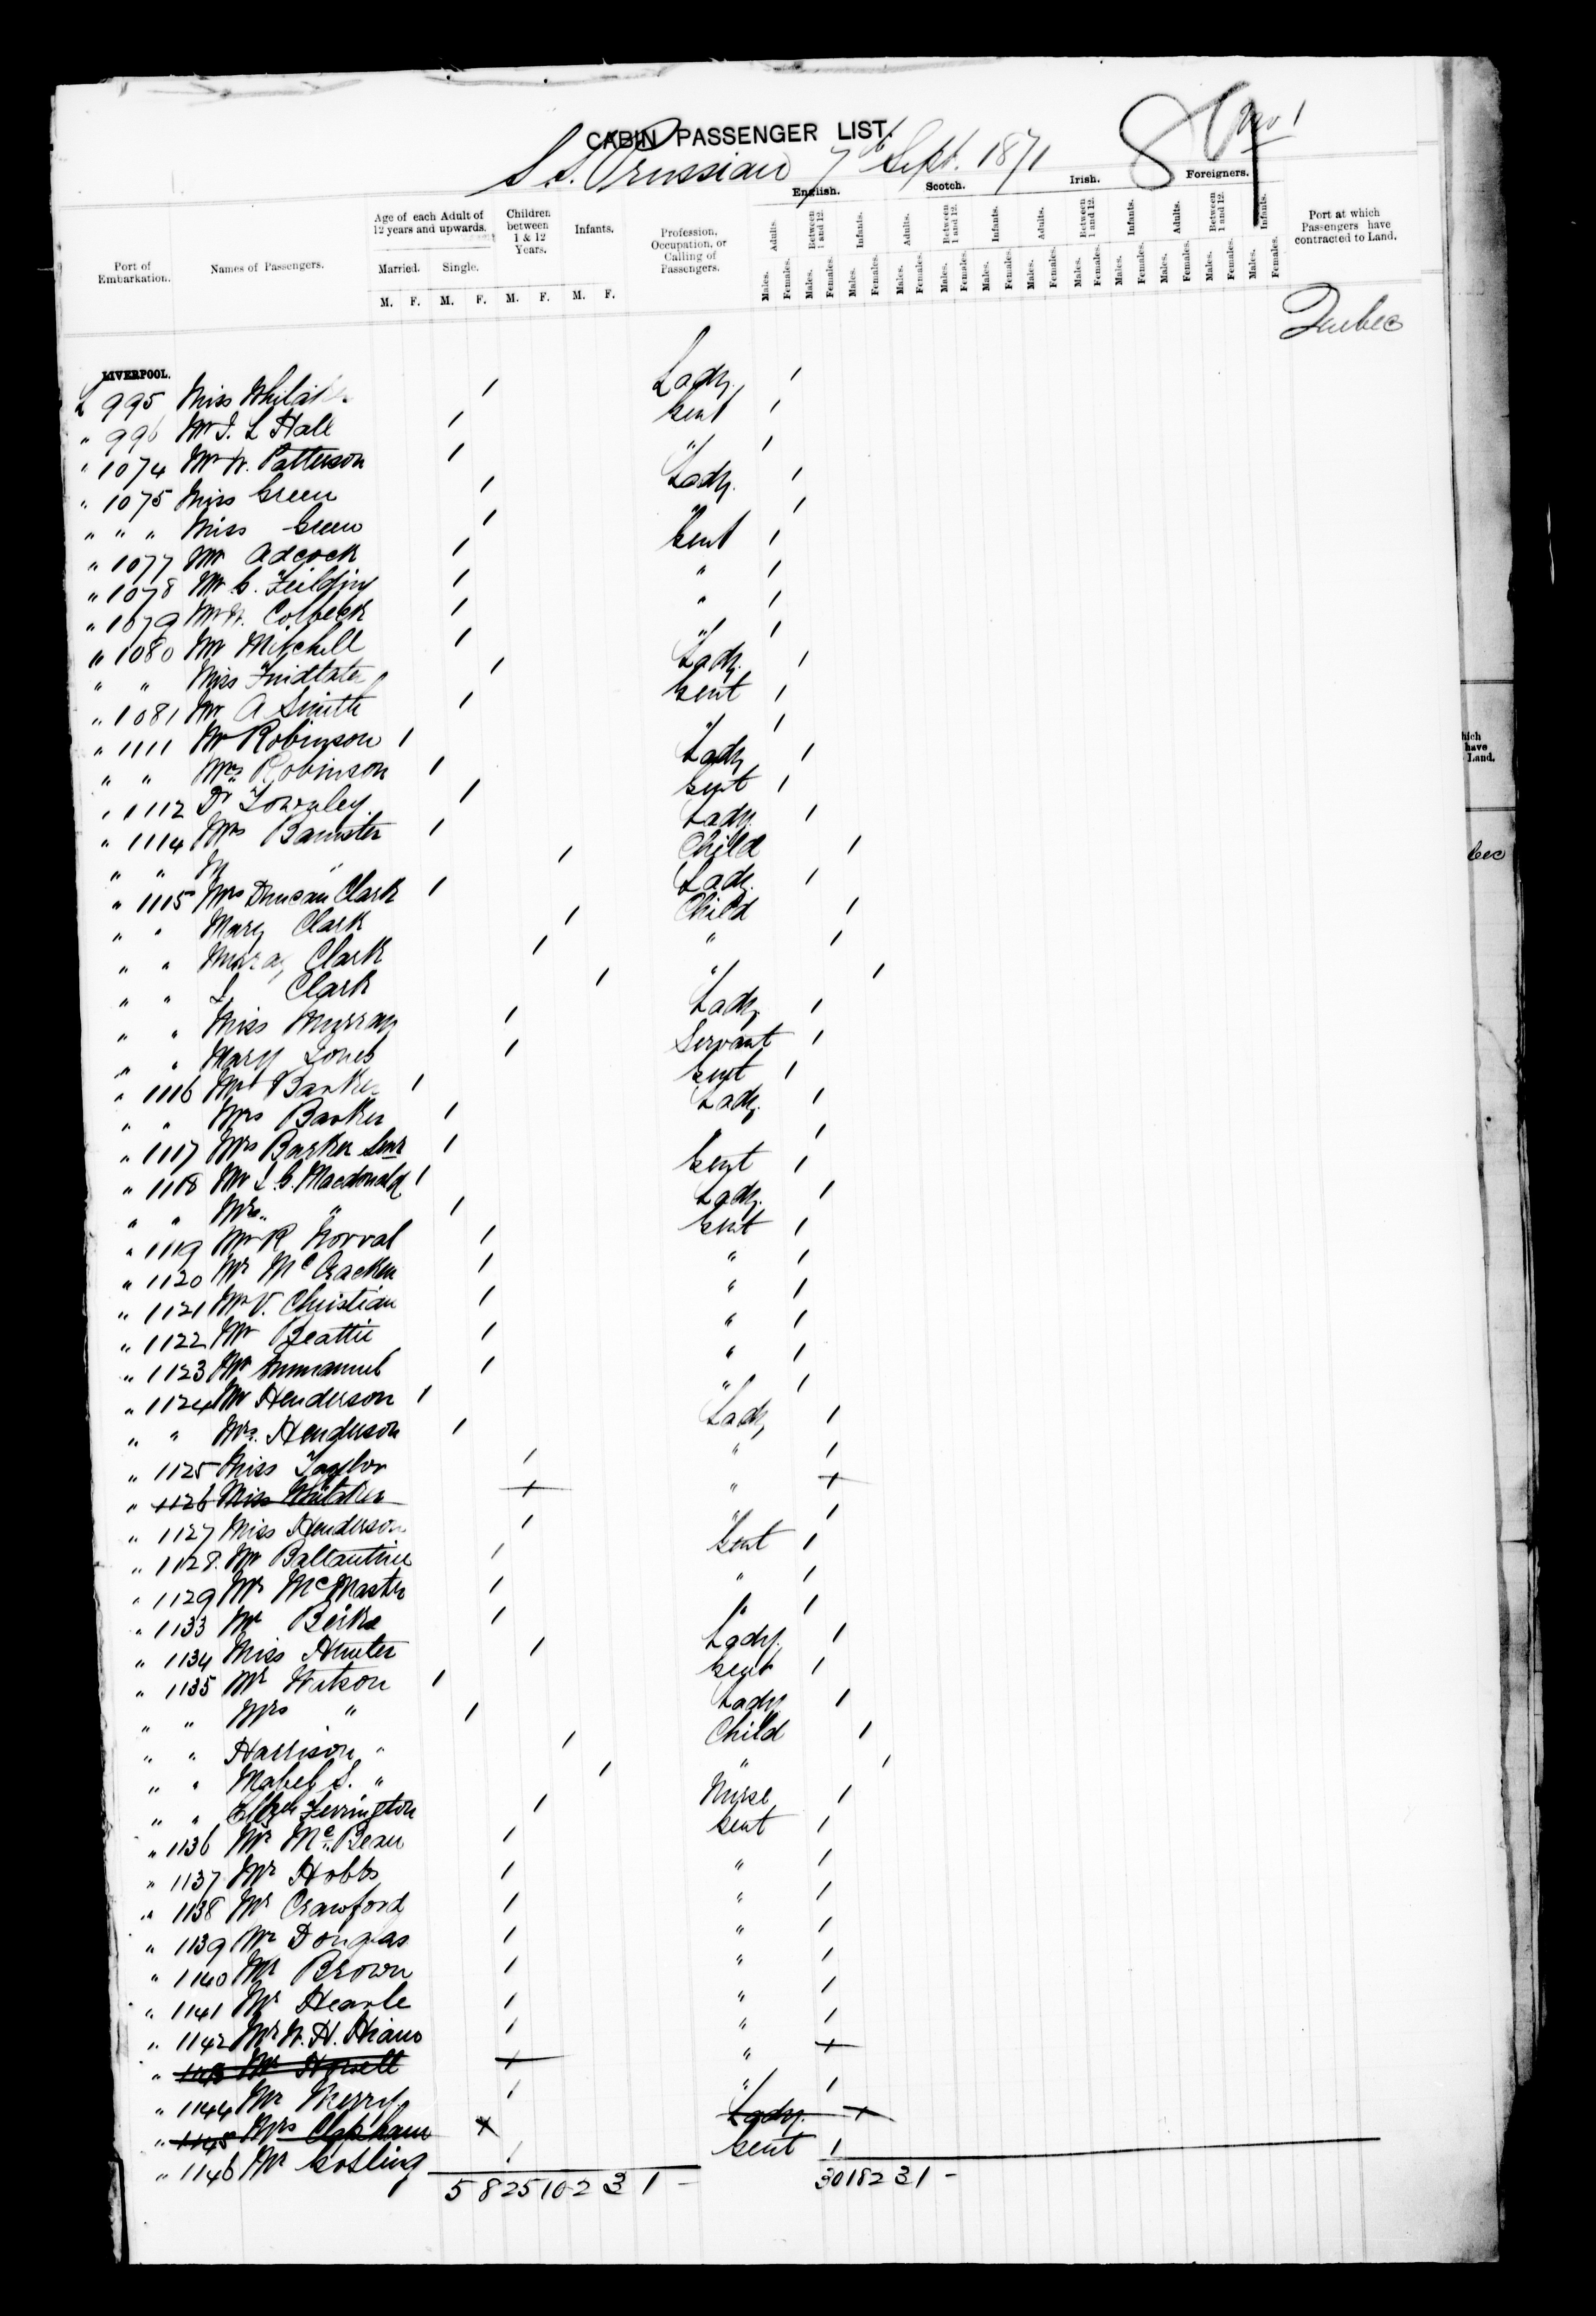 CABIN PASSENGER LIST.
S.S. Prussian 7th Sept. 1871
No 1
English. Scotch. Irish. Foreigners.
Port of Embarkation. Names of Passengers. Age of each Adult of 12 years and upwards. Children between 1 & 12 Years. Infants. Profession, Occupation, or Calling of Passengers. Adults. Between 1 and 12. Infants. Adults. Between 1 and 12. Infants. Adults. Between 1 and 12. Infants. Adults. Between 1 and 12. Infants. Port at which Passengers have contracted to Land.
Married. Single.
M. F. M. F. M. F. M. F. Males. Females. Males. Females. Males. Females. Males. Females. Males. Females. Males. Females. Males. Females. Males. Females. Males. Females. Males. Females. Males. Females. Males. Females.
Quebec
LIVERPOOL.
L 995 Miss 1 Lady 1
" 996 Mr J. L Hall 1 Gent 1
" 1074 Mr W. Patterson 1 " 1
" 1075 Miss Green 1 Lady. 1
" " " Miss Green 1 " 1
" 1077 Mr Adcock 1 Gent 1
" 1078 Mr G. Feilding 1 " 1
" 1079 Mr W. Colbeck 1 " 1
" 1080 Mr Mitchell 1 " 1
" " Miss 1 Lady. 1
" 1081 Mr A Smith 1 Gent 1
" 1111 Mr Robinson 1 " 1
" " Mrs Robinson 1 Lady 1
" 1112 Dr Townley 1 Gent 1
" 1114 Mrs Bannister 1 Lady. 1
" " M " 1 Child 1
" 1115 Mrs Duncan Clark 1 Lady. 1
" " Mary Clark 1 Child 1
" " Clark 1 " 1
" " Clark 1 " 1
" " Miss Murray 1 Lady 1
" " Mary Jones 1 Servant 1
" 1116 Mr Barker 1 Gent 1
" " Mrs Barker 1 Lady. 1
" 1117 Mrs Barker Senr 1 " 1
" 1118 Mr J. G. Macdonald 1 Gent 1
" " Mrs " 1 Lady. 1
" 1119 Mr R Norval 1 Gent 1
" 1120 Mr McCracken 1 " 1
" 1121 Mr V. Christian 1 " 1
" 1122 Mr Beattie 1 " 1
" 1123 Mr Emmanuel 1 " 1
" 1124 Mr Henderson 1 " 1
" " Mrs. Henderson 1 Lady 1
" 1125 Miss Taylor 1 " 1
" 1126 Miss Whitaker " 
" 1127 Miss Henderson 1 " 1
" 1128. Mr Ballantine 1 Gent 1
" 1129 Mr McMaster 1 " 1
" 1133 Mr 1 " 1
" 1134 Miss Hunter 1 Lady. 1
" 1135 Mr Watson 1 Gent 1
" " Mrs " 1 Lady 1
" " Harrison " 1 Child 1
" " Mabel S. " 1 " 1
" " Ferrington 1 Nurse 1
" 1136 Mr McBean 1 Gent 1
" 1137 Mr Hobbs 1 " 1
" 1138 Mr Crawford 1 " 1
" 1139 Mr Douglas 1 " 1
" 1140 Mr Brown 1 " 1
" 1141 Mr Hearle 1 " 1
" 1142 Mr W. H. 1 " 1
" 1143 Mr Howell "
" 1144 Mr Merry 1 " 1
" 1145 Mrs Clapham Lady.
" 1146 Mr Gosling 1 Gent 1
5 8 25 10 2 3 1 - 30 18 2 3 1 -
hich
have
Land.
bec